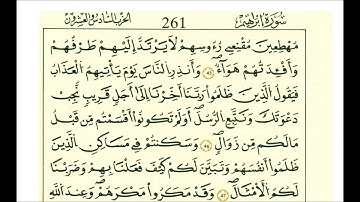 سُورَةُ إِبْرَاهِيمَ 261 الحزب السادس والعشرين
مُهْطِعِينَ مُقْنِعِي رُءُوسِهِمْ لَا يَرْتَدُّ إِلَيْهِمْ طَرْفُهُمْ
وَأَفْئِدَتُهُمْ هَوَآءٌ وَأَنذِرِ النَّاسَ يَوْمَ يَأْتِيهِمُ الْعَذَابُ
فَيَقُولُ الَّذِينَ ظَلَمُوا رَبَّنَا أَخِّرْنَا إِلَىٰ أَجَلٍ قَرِيبٍ نُّجِبْ
دَعْوَتَكَ وَنَتَّبِعِ الرُّسُلَ أَوَلَمْ تَكُونُوا أَقْسَمْتُم مِّن قَبْلُ
مَا لَكُم مِّن زَوَالٍ وَسَكَنتُمْ فِي مَسَاكِنِ الَّذِينَ
ظَلَمُوا أَنفُسَهُمْ وَتَبَيَّنَ لَكُمْ كَيْفَ فَعَلْنَا بِهِمْ وَضَرَبْنَا
لَكُمُ الْأَمْثَالَ وَقَدْ مَكَرُوا مَكْرَهُمْ وَعِندَ اللَّهِ